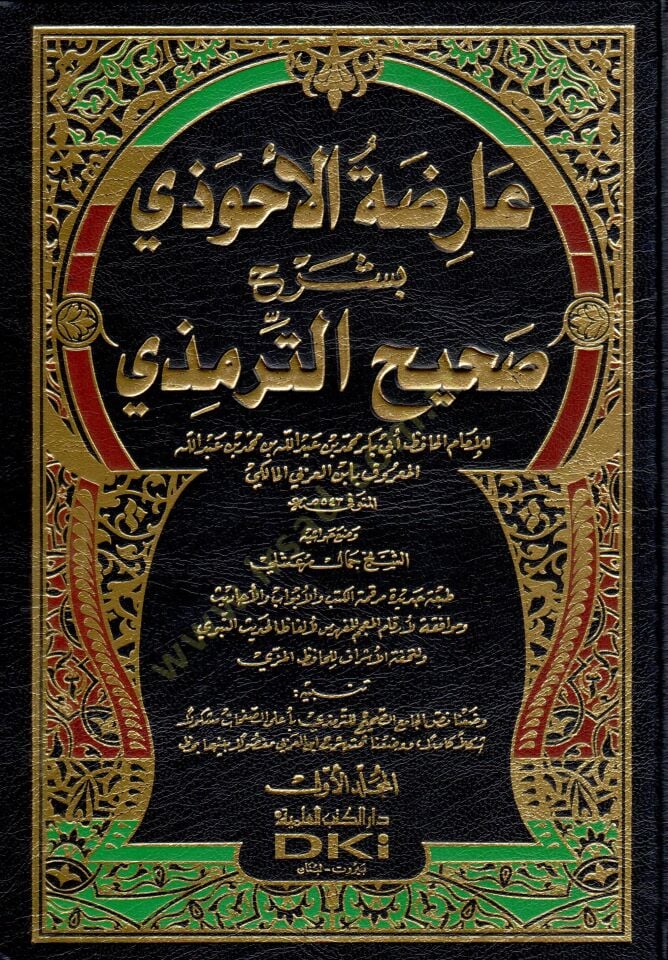 عَارِضَةُ الأحْوَذي
بِشَرْح
صَحيح التِّرمِذي
للإمام الحافظ أبي بكر محمد بن عبد الله بن محمد بن عبد الله
المعروف بابن العربي المالكي
المتوفى ٥٤٣ هـ
وضع حواشيه
الشيخ جمال مرعشلي
طبعة جديدة مرقمة الكتب والأبواب والأحاديث
وموافقة لأرقام المعجم المفهرس لألفاظ الحديث النبوي
ولتحفة الأشراف للحافظ المزّي
تنبيه:
وضعنا نصّ الجامع الصحيح للترمذي بأعلى الصفحات مشكولاً
شكلاً كاملاً، ووضعنا تحته شرح ابن العربي مفصولاً بينهما بخط
المجلد الأول
دار الكتب العلمية
DKi
بيروت - لبنان